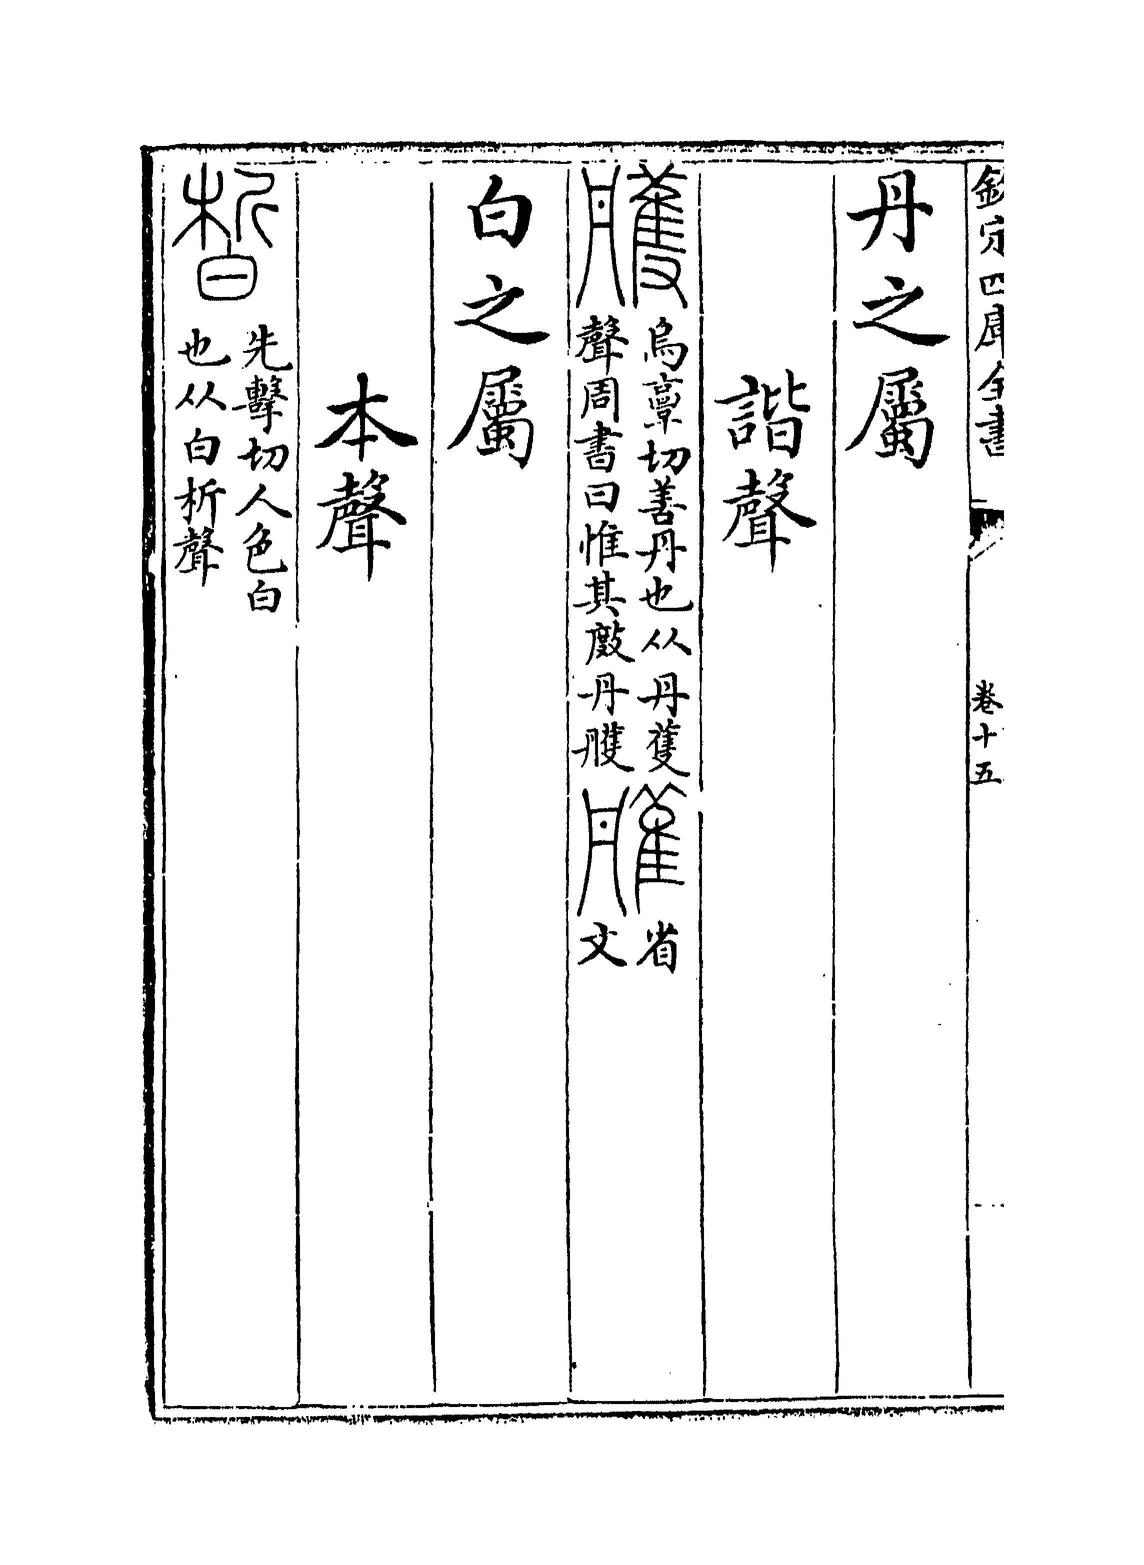 欽定四庫全書　卷十五
丹之屬
諧聲
雘
烏切善丹也从丹蒦
聲周書曰惟其𢾖丹雘
省文
白之屬
本聲
皙
先擊切人色白
也从白析聲